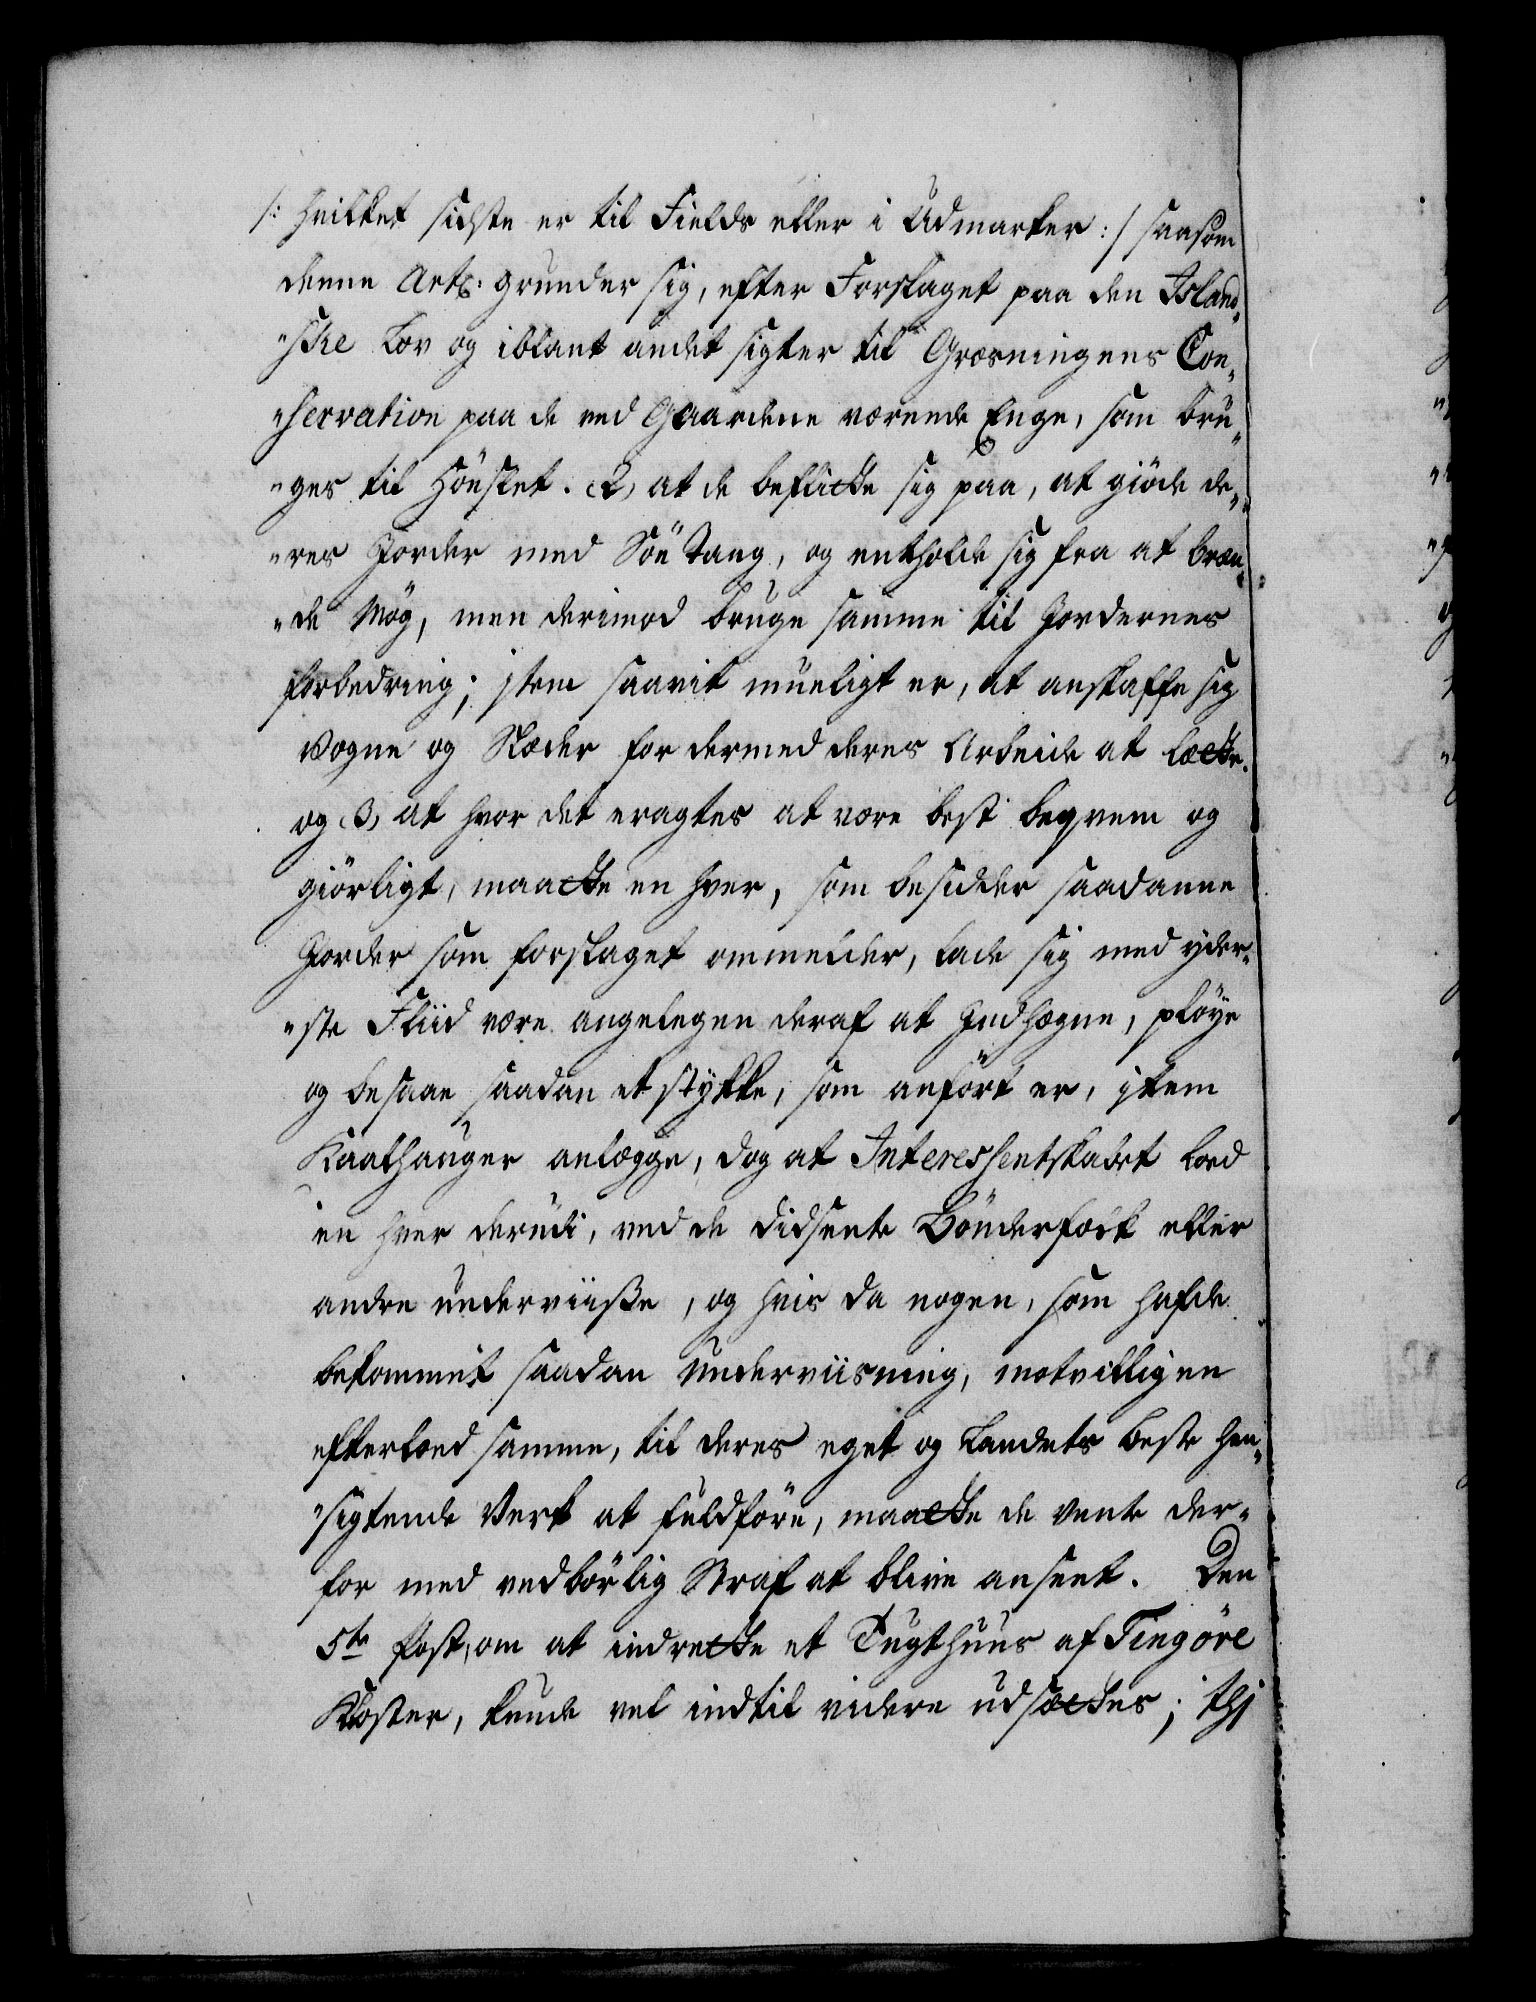 /: hvilket sidste er til Fields eller i Udmarker :/ saasom
denne Art: grunder sig, efter Forslaget paa den Island„
„ske Lov og iblant andet sigter til Græsningens Con„
„servation paa de ved Gaardene værende Enge, som bru„
„ges til Höesl̈et. (2) at de beflitte sig paa, at giöde de„
„res Jorder med Söe Tang, og entholde sig fra at bræn„
„de Mög, men derimod bruge samme til Jordernes
forbedring; item saavit mueligt er, at anskaffe sig
Vogne og Slæder for dermed deres Arbeide at lætte.
og (3) at hvor det eragtes at være best beqvem og
giörligt, maatte en hver, som besidder saadanne
Jorder som forslaget ommelder, lade sig med yder„
„ste Fliid være angelegen deraf at Indhægne, plöye
og besaae saadan et stykke, som anfört er, item
Kaalhauger anlægge, dog at Interessentskabet lod
en hver derudi, ved de didsente Bönderfolk eller
andre underviisse, og hvis da nogen, som hafde
bekommet saadan Underviisning, motvilligen
efterlod samme, til deres eget og Landets beste hen„
„sigtende Verk at fuldföre, maatte de vente der„
for med vedbörlig Straf at blive anseet. Den
5te Post, om at indrette et Tugthuus af Tingöre
Kloster, kunde vel indtil videre udsættes; thj